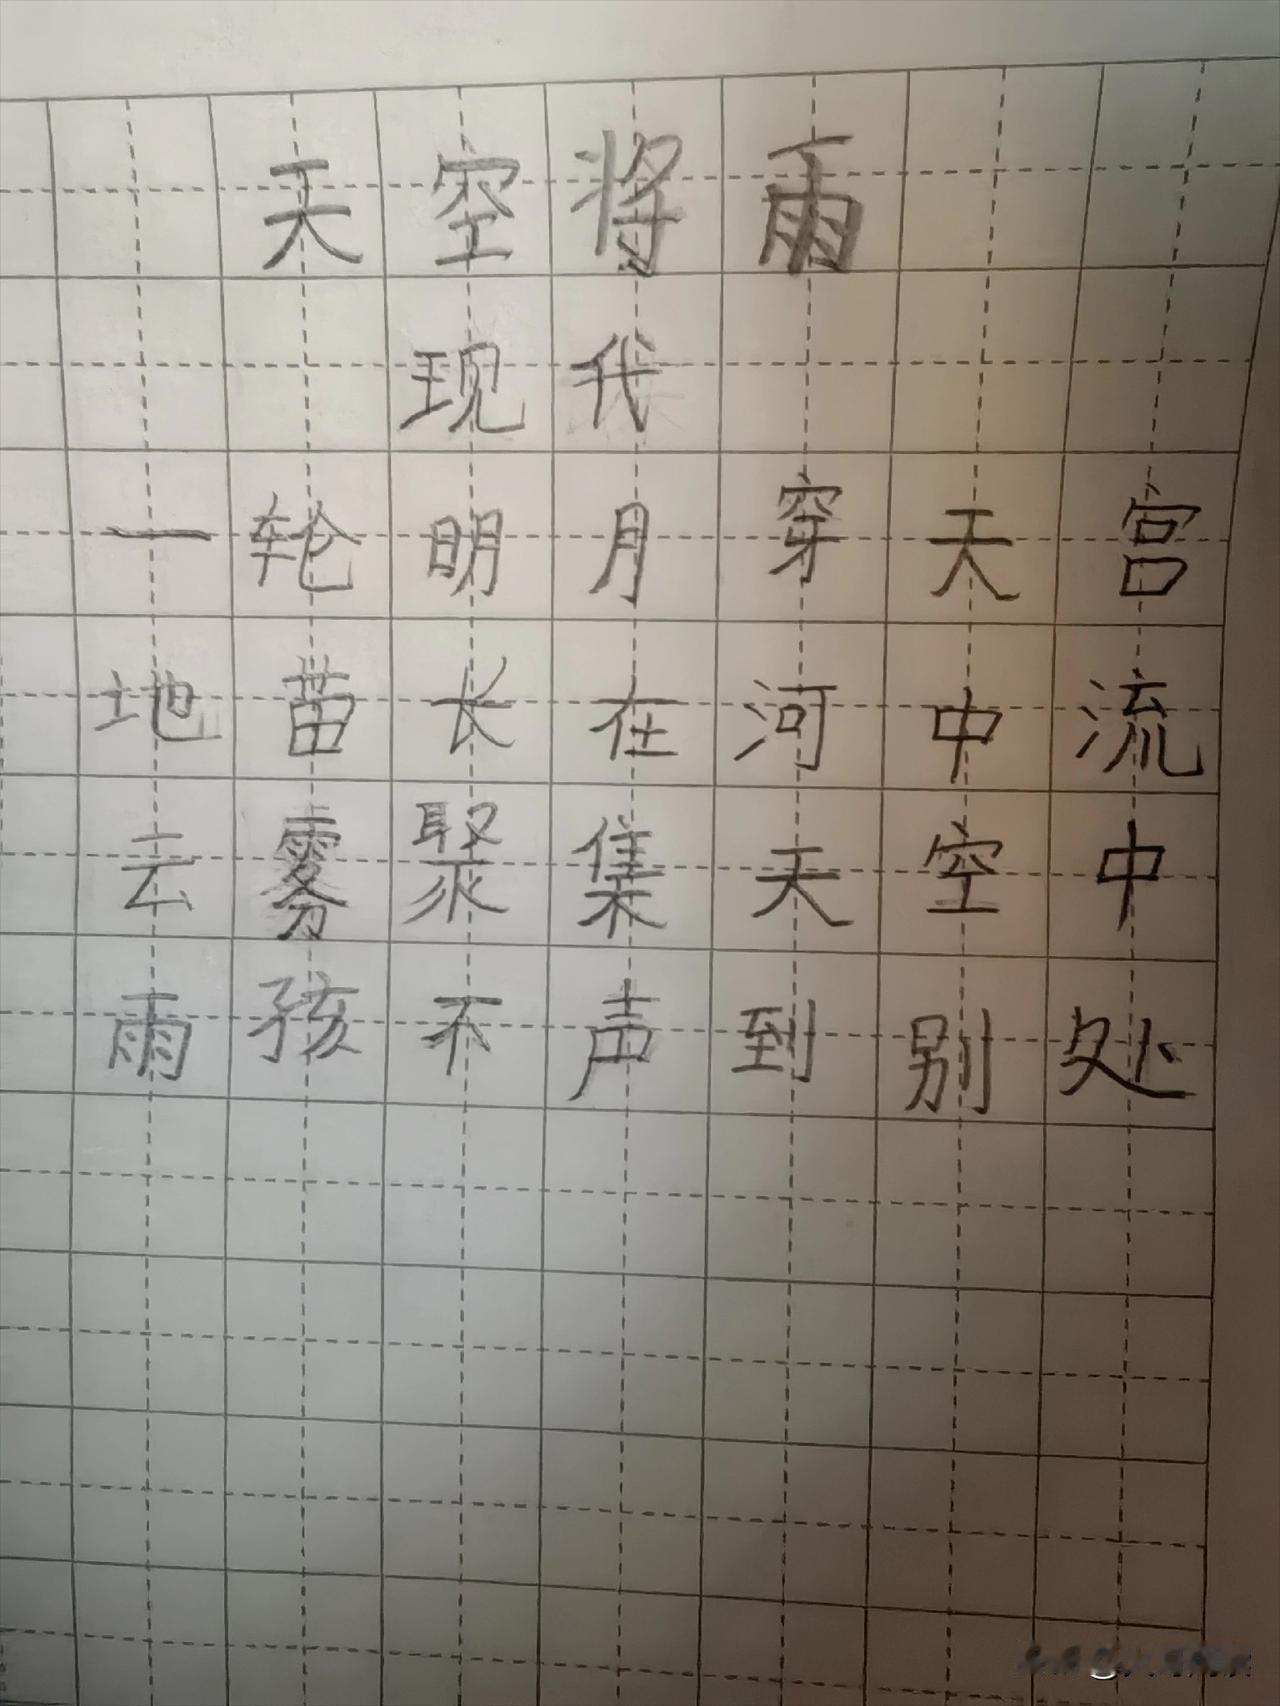 天空将雨
现代
一轮明月穿天宫
地苗长在河中流
云雾聚集天空中
雨孩不声到别处